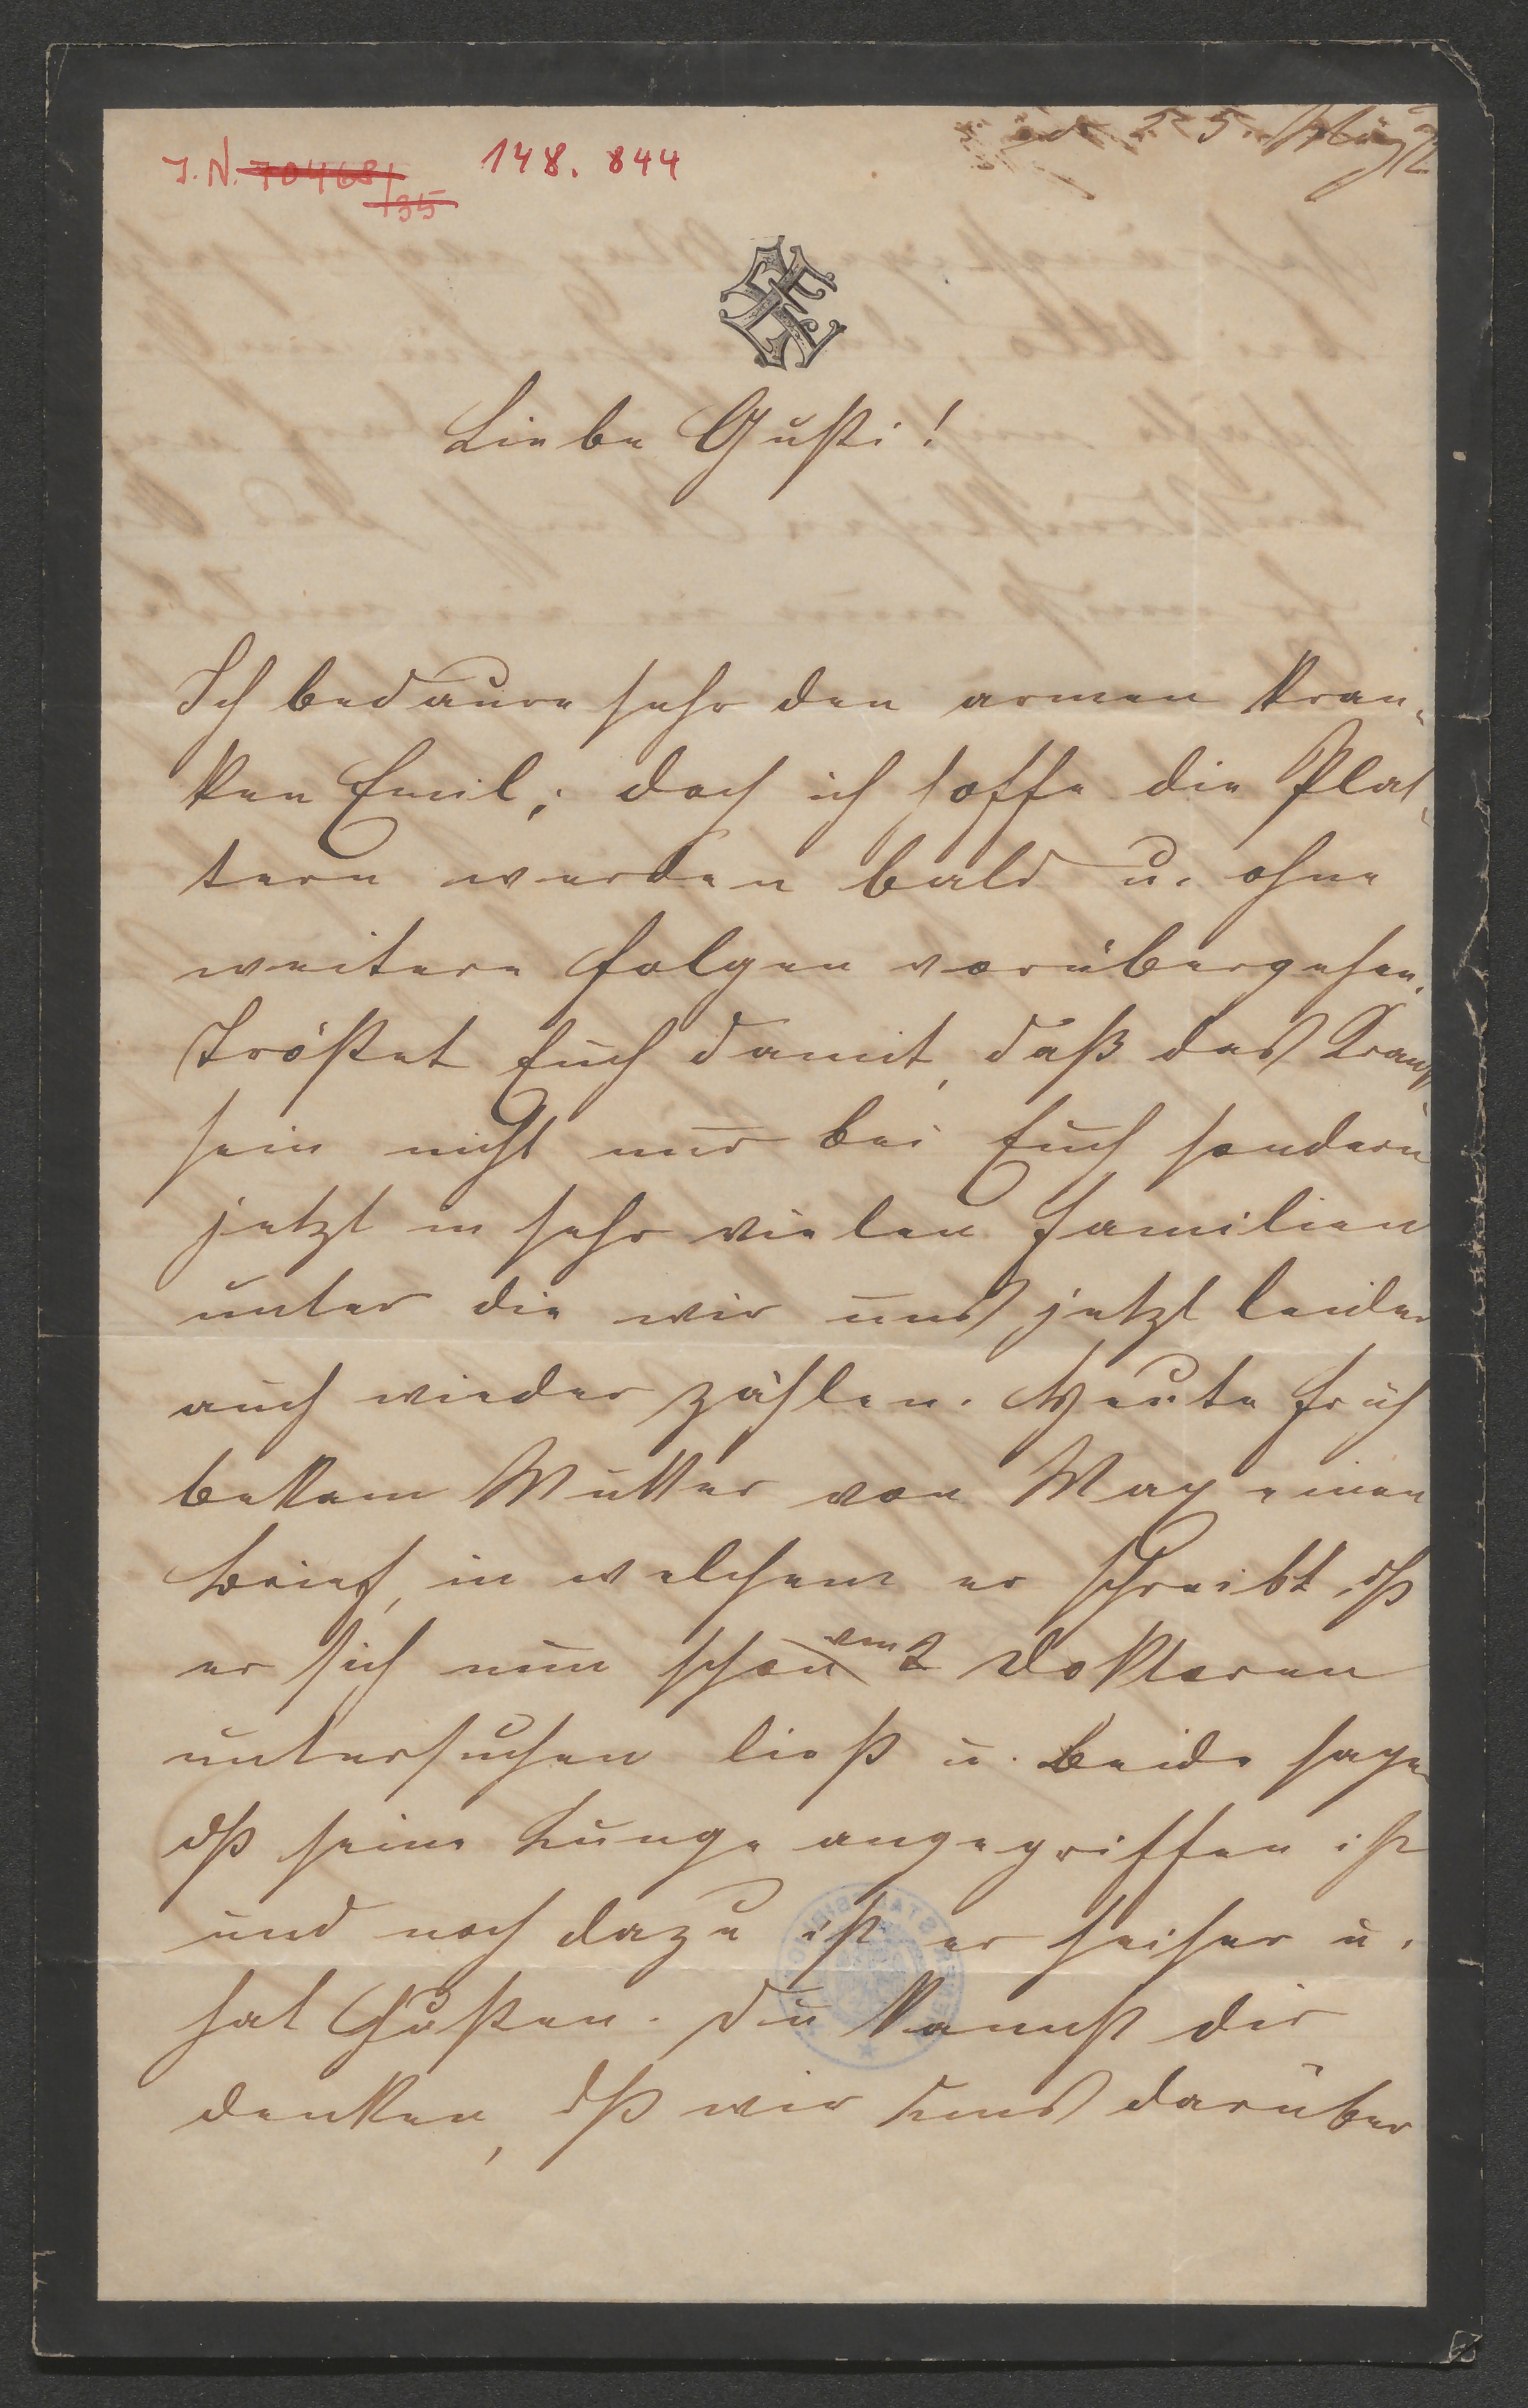 I. N. 70468/ 148.844
35
25. März
Liebe Gusti!
Ich bedaure sehr den armen kran-
ken Emil; doch ich hoffe die Blat-
tern werden bald u. ohne
weitere Folgen vorübergehen.
Tröstet Euch damit, daß das Krank
sein nicht nur bei Euch sondern
jetzt in sehr vielen Familien
unter die wir uns jetzt leider
auch wieder zählen. Heute früh
bekam Mutter von Max einen
Brief, in welchem er schreibt, dß
er sich nun schon von 2 Doktoren
untersuchen ließ u. beide sagen
dß seine Lunge angegriffen ist
und noch dazu ist er heiser u.
hat Husten. Du kannst dir
denken, dß wir uns darüber